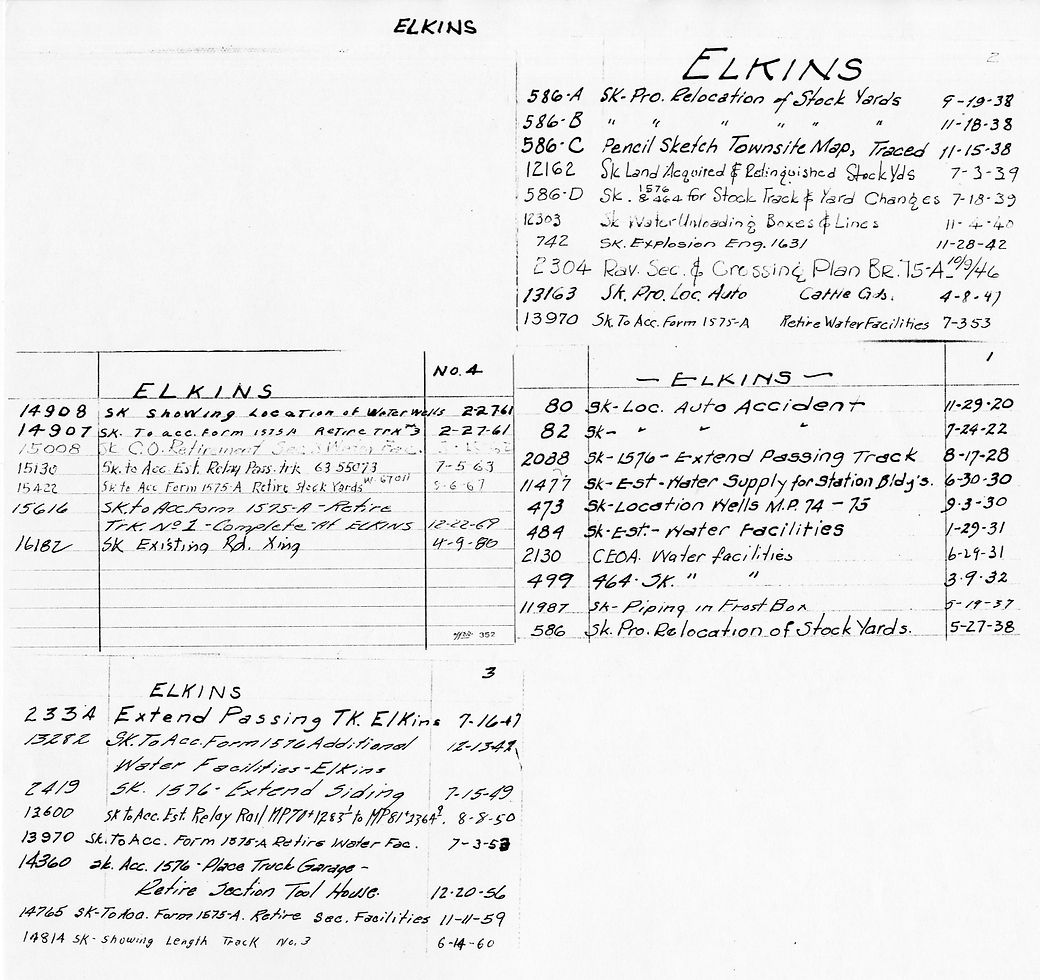 ELKINS
2
ELKINS
586-A SK-Pro. Relocation of Stock Yards 9-19-38
586-B " " " " " " 11-18-38
586-C Pencil Sketch Townsite Map, Traced 11-15-38
12162 Sk Land Acquired & Relinquished Stock Yds 7-3-39
586-D Sk. 1576 & 464 for Stock Track & Yard Changes 7-18-39
12303 Sk Water Unloading Boxes & Lines 11-4-40
742 SK. Explosion Eng. 1631 11-28-42
2304 Rav. Sec. & Crossing Plan BR. 75-A 10/9/46
13163 Sk. Pro. Loc. Auto Cattle Gds. 4-8-47
13970 Sk. To Acc. Form 1575-A Retire Water Facilities 7-3 53
No. 4
ELKINS
14908 SK Showing Location of Water Wells 2-27-61
14907 SK. To acc. Form 1575A Retire TRK #3 2-27-61
15008 Sk C.O. Retirement Water Fac.
15130 Sk. to Acc. Est. Relay Pass. trk 63 55073 7-5 63
15422 Sk to Acc Form 1575-A Retire Stock Yards W-67011 -6-67
15616 SK to Acc Form 1575-A - Retire
TRK. Nº 1 - Complete At ELKINS 12-22-69
16182 SK Existing Rd. Xing 4-9-80
352
1
— ELKINS —
80 SK-Loc. Auto Accident 11-29-20
82 SK- " " " 7-24-22
2088 SK-1576 - Extend Passing Track 8-17-28
11477 SK-Est-Water Supply for Station Bldg's. 6-30-30
473 SK-Location Wells M.P. 74 - 75 9-3-30
484 SK-Est.- Water Facilities 1-29-31
2130 CEOA. Water facilities 6-29-31
499 464-SK. " " 3-9-32
11987 SK- Piping in Frost Box 5-19-37
586 Sk. Pro. Relocation of Stock Yards. 5-27-38
3
ELKINS
233A Extend Passing TK. Elkins 7-16-47
13282 SK. To Acc. Form 1576 Additional 12-1347
Water Facilities-Elkins
2419 SK. 1576- Extend Siding 7-15-49
13600 SK to Acc. Est. Relay Rail MP 70+1283 to MP 81+2364. 8-8-50
13970 Sk. To Acc. Form 1575-A Retire Water Fac. 7-3-53
14360 Sk. Acc. 1576 - Place Truck Garage -
Retire Section Tool House. 12-20-56
14765 SK-To Acc. Form 1575-A. Retire Sec. Facilities 11-11-59
14814 SK- Showing Length Track No. 3 6-14-60